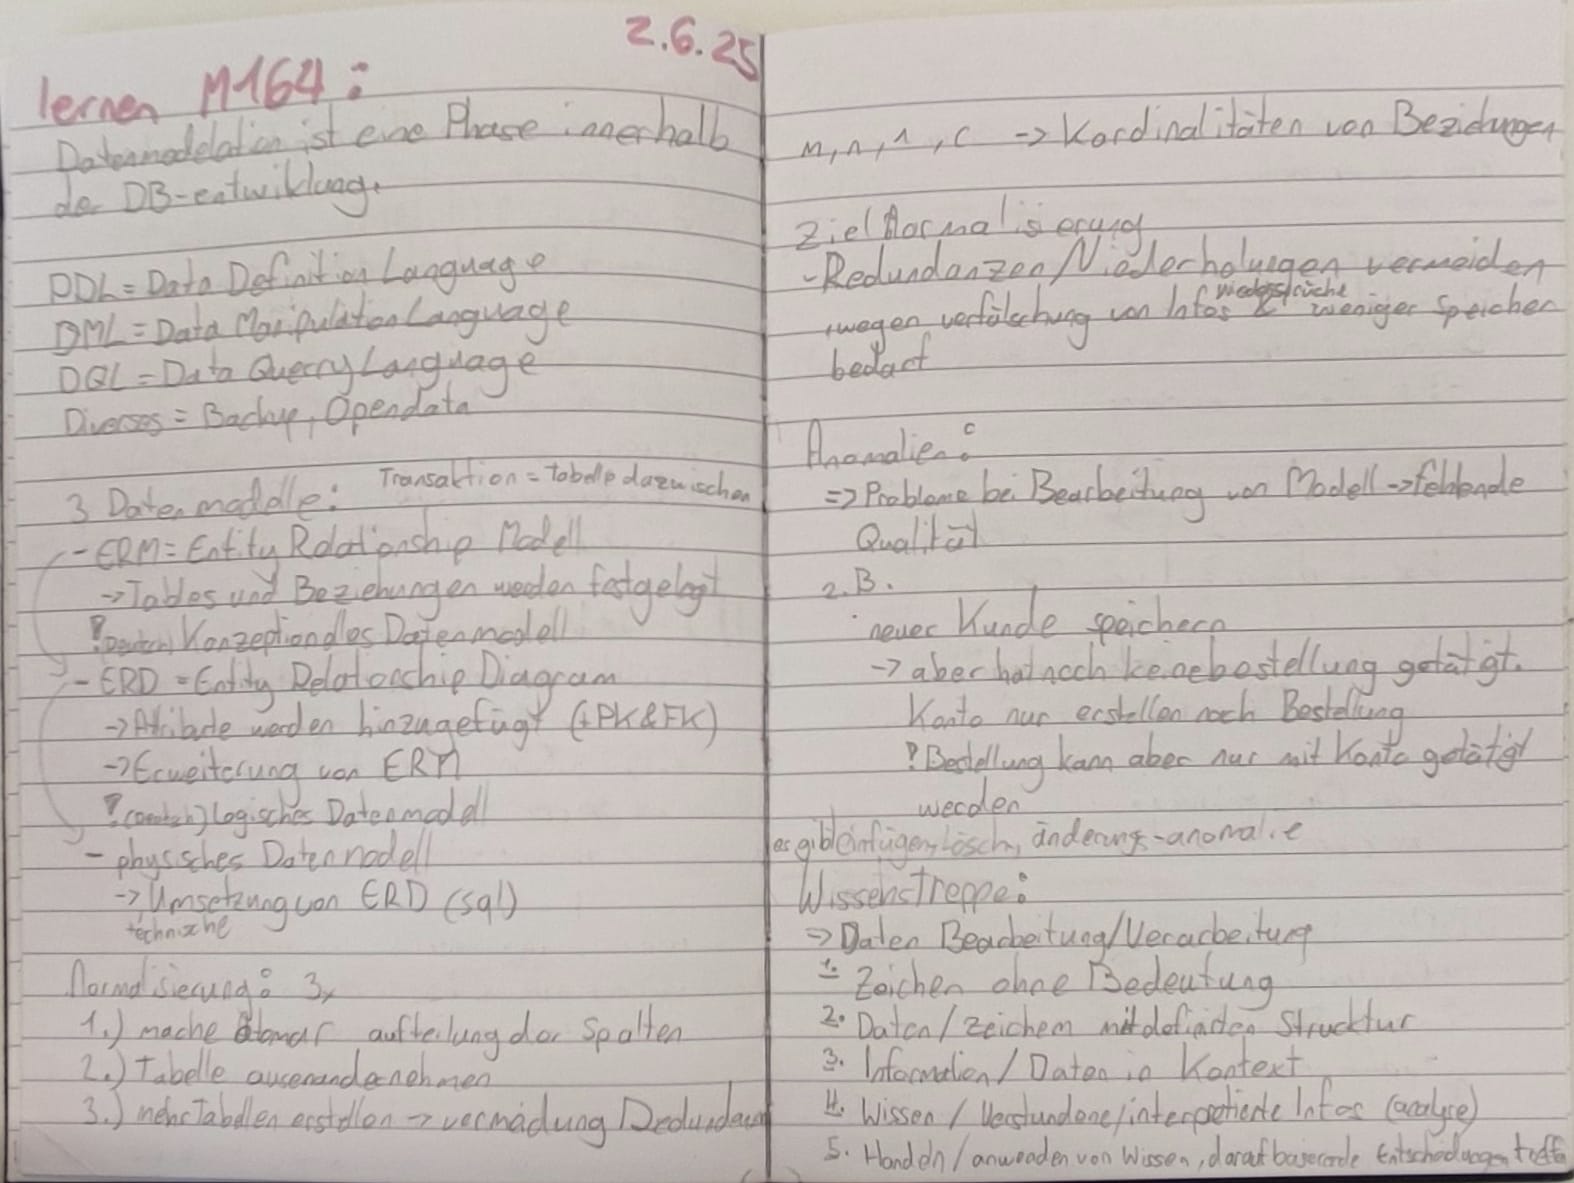 2.6.25
lernen M164:
Datenmodelation ist eine Phase innerhalb
der DB-entwiklung.
DDL = Data Definition Language
DML = Data Manipulation Language
DQL = Data Querry Language
Diverses = Backup, Opendata
Transaktion = tabelle dazwischen
3 Datenmodelle:
- ERM = Entity Relationship Modell
-> Tables und Beziehungen werden festgelegt
! (Deutsch) Konzeptionelles Datenmodell
- ERD = Entity Relationship Diagram
-> Atribute werden hinzugefügt (+PK&FK)
-> Erweiterung von ERM
! (Deutsch) logisches Datenmodell
- physisches Datenmodell
-> Umsetzung von ERD (sql)
technische
Normalisierung: 3x
1.) mache atomar aufteilung der Spalten
2.) Tabelle ausenandernehmen
3.) mehr Tabellen erstellen -> vermeidung Redundanz
m, n, 1, c -> Kardinalitäten von Beziehungen
Ziel Normalisierung
- Redundanzen/Wiederholungen vermeiden
wegen verfälschung von Infos & wiedersprüche weniger Speicher
bedarf
Anomalien:
=> Probleme bei Bearbeitung von Modell -> fehlende
Qualität
z.B.
neuer Kunde speichern
-> aber hat noch keine bestellung getätigt.
Konto nur erstellen nach Bestellung
! Bestellung kann aber nur mit Konto getätigt
werden
es gibt einfügen, lösch, änderungs-anomalie
Wissenstreppe:
=> Daten Bearbeitung/Verarbeitung
1. Zeichen ohne Bedeutung
2. Daten / Zeichem mit definiten Strucktur
3. Information / Daten in Kontext
4. Wissen / Verstandene/interpretierte Infos (analyse)
5. Handeln / anwenden von Wissen, darauf basierende Entscheidungen treffen